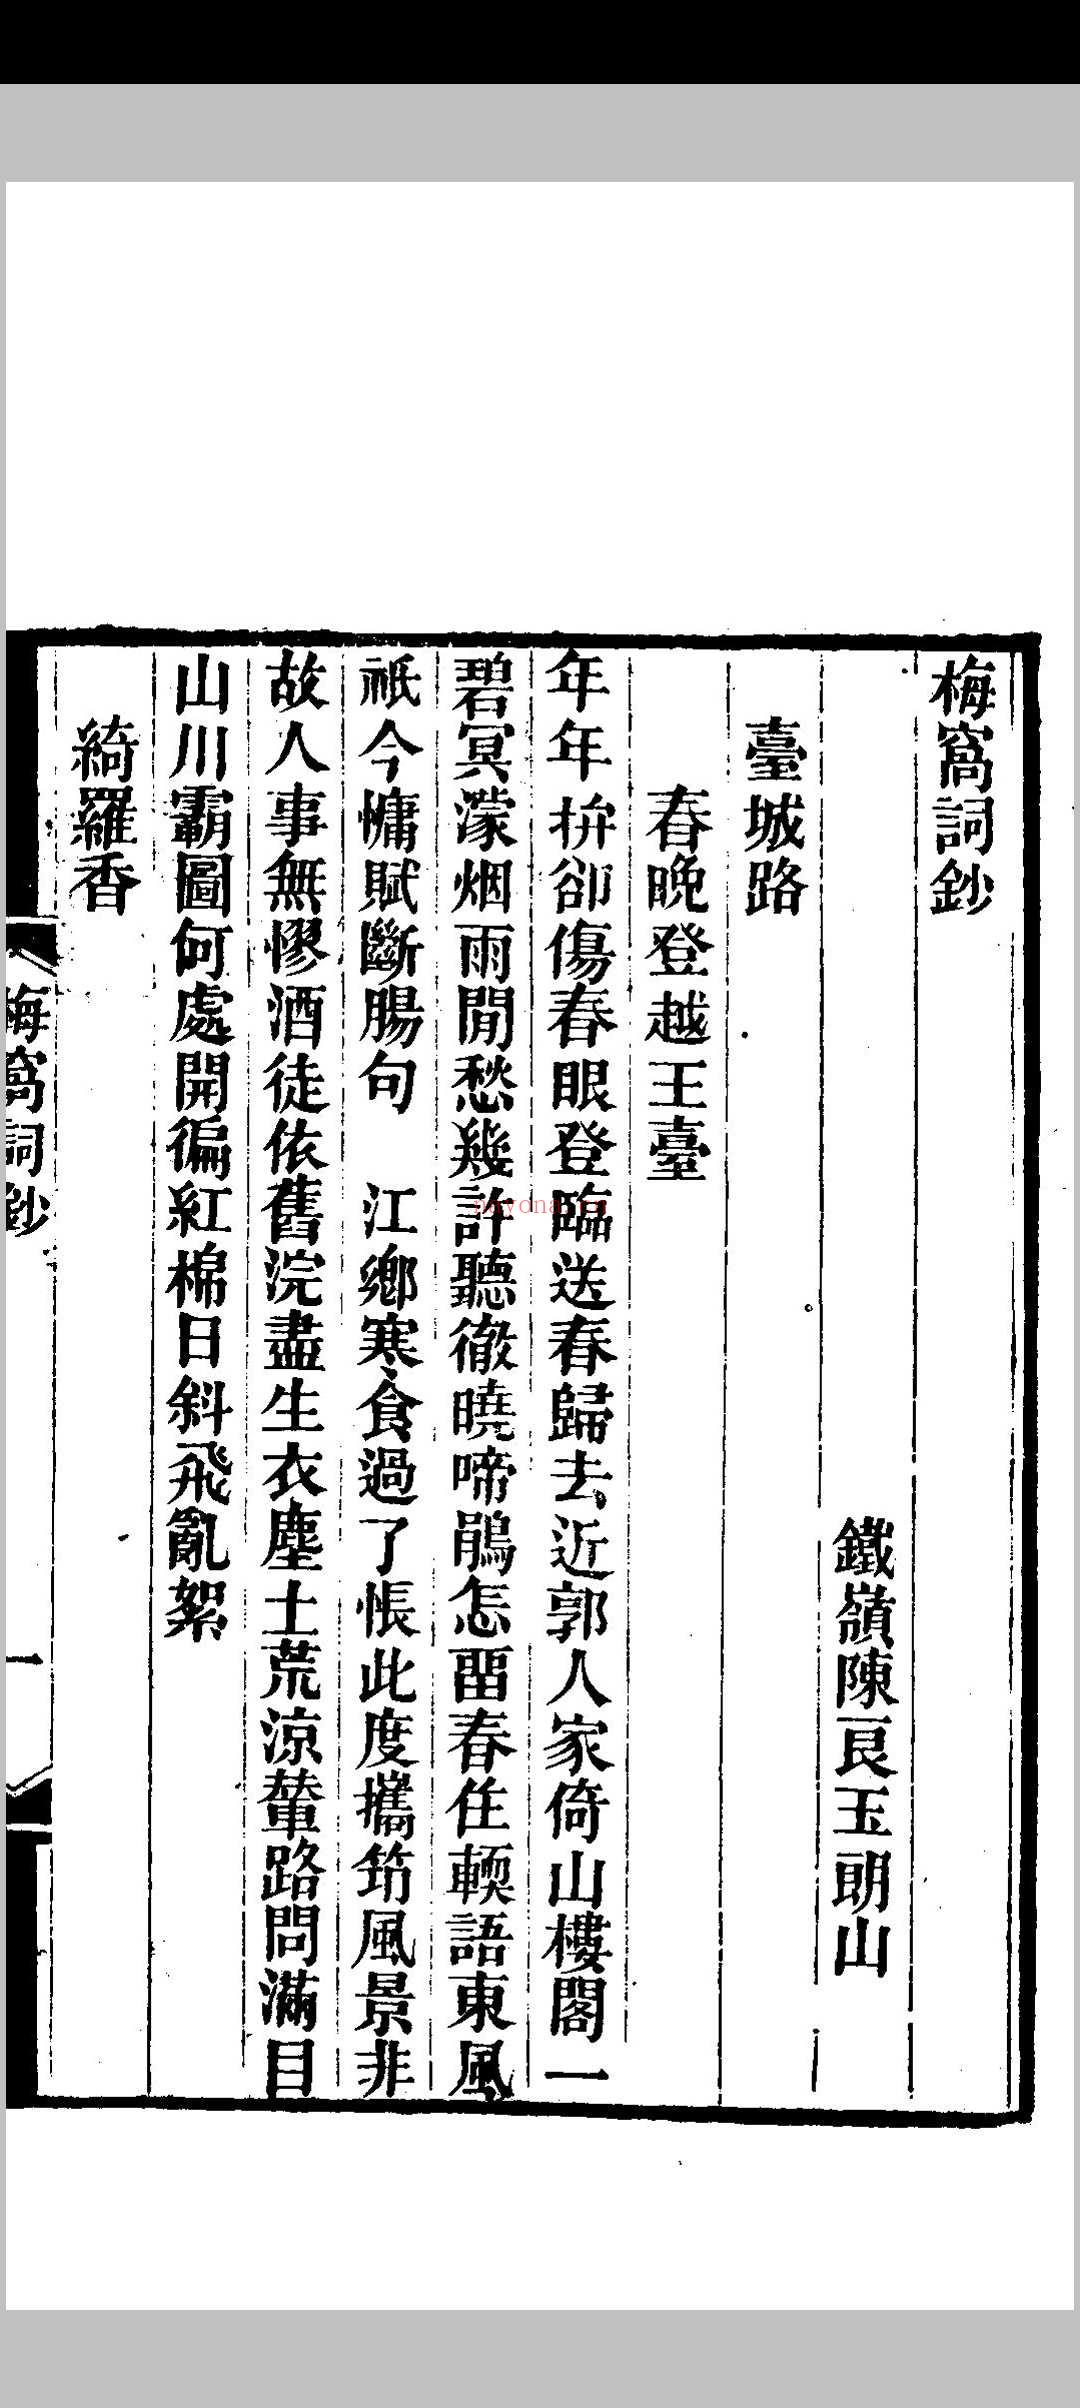 梅窩詞鈔
鐵嶺陳良玉朗山
臺城路
春晚登越王臺
年年拚卻傷春眼登臨送春歸去近郭人家倚山樓閣一
碧冥濛烟雨閒愁幾許聽徹曉啼鵑怎畱春住輭語東風
祇今慵賦斷腸句　江鄉寒食過了悵此度攜笻風景非
故人事無憀酒徒依舊浣盡生衣塵土荒涼輦路問滿目
山川霸圖何處開徧紅棉日斜飛亂絮
綺羅香
梅窩詞鈔
一